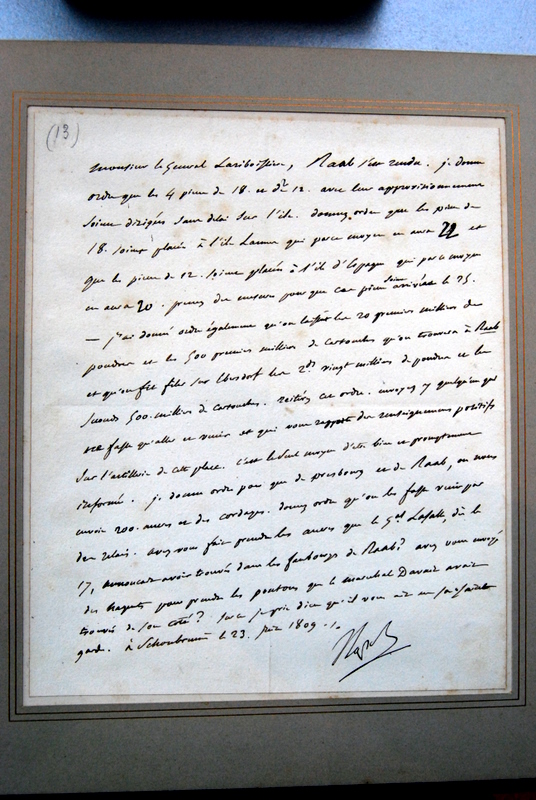 (13)
Monsieur le General Lariboissiere, Raab s'est rendu. je donne
ordre que les 4 pieces de 18. et de 12. avec leur approvisionnement
soient dirigées sans delai sur l'ile. donnez ordre que les pieces de
18. soient placées à l'ile Lannes qui par ce moyen en aura 22 et
que les pieces de 12. soient placées à l'ile d'Espagne qui par ce moyen
en aura 20. prenez des mesures pour que ces pieces soient arrivées le 25.
— j'ai donné ordre également qu'on laissat les 20 premiers milliers de
poudres et les 500 premiers milliers de cartouches qu'on trouvera à Raab
et qu'on fit filer sur Ebersdorf les 2ds vingt milliers de poudre et les
seconds 500. milliers de cartouches. reitérez cet ordre. envoyez y quelqu'un qui
les fasse venir et qui vous rapporte des renseignements positifs
sur l'artillerie de cette place. c'est le seul moyen d'etre bien et promptement
informé. je donne ordre pour que de presbourg et de Raab, on nous
envoie 200. ancres et des cordages. donnez ordre qu'on les fasse venir par
des relais. avez vous fait prendre les ancres que le Gal Lasalle, dès le
17, annoncait avoir trouvés dans les faubourgs de Raab? avez vous envoyé
des haquets pour prendre les pontons que le marechal Davout avait
trouvés de son coté? Sur ce je prie dieu qu'il vous ait en sa sainte
garde. à Schonbrunn le 23. juin 1809.
Nap